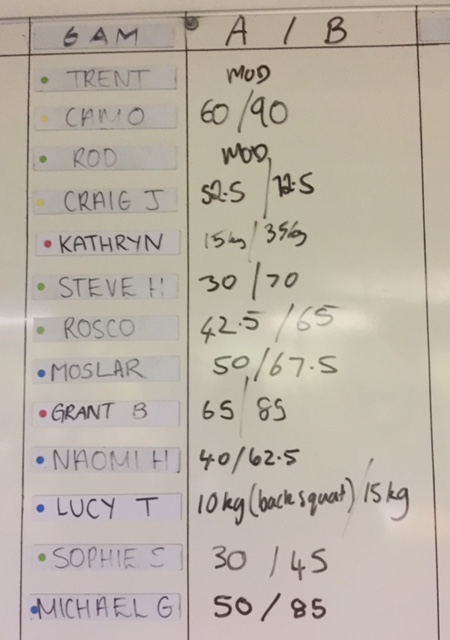 6 AM A / B
TRENT MOD
CAMO 60/90
ROD MOD
CRAIG J 52.5 / 72.5
KATHRYN 15kg / 35kg
STEVE H 30 / 70
ROSCO 42.5 / 65
MOSLAR 50/67.5
GRANT B 65 / 85
NAOMI H 40/62.5
LUCY T 10kg (back squat) / 15kg
SOPHIE S 30 / 45
MICHAEL G 50 / 85